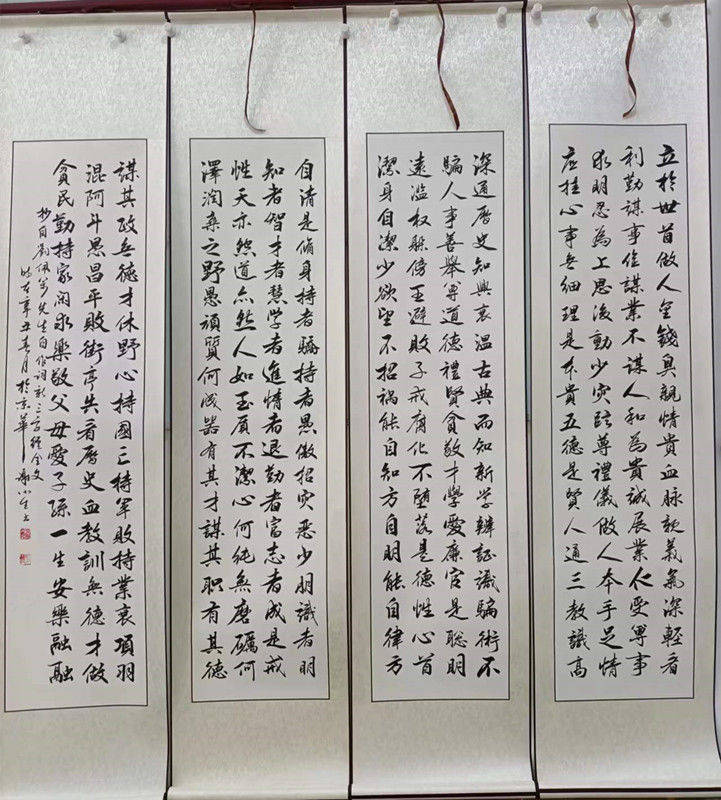 立於世首做人金錢臭親情貴血脉親義氣深輕看
利勤謀事信謀業不謀人和為貴誠展業仁受尊事
求明忍為上思後動少灾臨尊禮儀做人本手足情
應挂心事無細理是本貴五德是賢人通三教識高
深通曆史知興衰溫古典而知新学辯証識騙術不
騙人事善舉尊道德禮賢貪敬才學愛廉官是聡明
遠濫权躲傍王避敗子戒腐化不堕落是德性心首
潔身自潔少欲望不招禍能自知方自明能自律方
自清是修身持者驕持者愚傲招灾惡少朋識者明
知者智才者慧学者進情者退勤者富志者成是戒
性天亦然道亦然人如玉質不潔心何純無磨礪何
澤润桑之野愚頑質何成器有其才謀其职有其德
謀其政無德才休野心持國亡持军敗持業衰項羽
混阿斗愚昌平敗街亭失看曆史血教訓無德才做
貧民勤持家闲求樂敬父母愛子孫一生安樂融融
抄自劉佩 先生自作詞新三字經全文
時在辛丑春月於京華